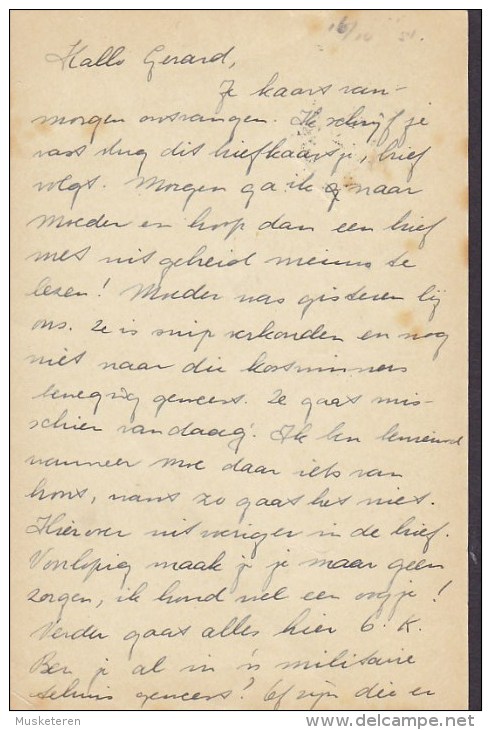 16/10 51.
Hallo Gerard,
Je kaart van-
morgen ontvangen. Ik schrijf je
vast vlug dit briefkaartje, brief
volgt. Morgen ga ik naar
moeder en hoop dan een brief
met uitgebreid nieuws te
lezen! Moeder was gisteren bij
ons. Ze is snipverkouden en nog
niet naar die kostwinners
geweest. Ze gaat mis-
schien vandaag. Ik ben benieuwd
wanneer moe daar iets van
hoort, want zo gaat het niet.
Hierover uitvoeriger in de brief.
Voorlopig maak je je maar geen
zorgen, ik houd wel een oogje!
Verder gaat alles hier O.K.
Ben je al in 'n militaire
tehuis geweest? Of zijn die er
Musketeren
delcampe.net